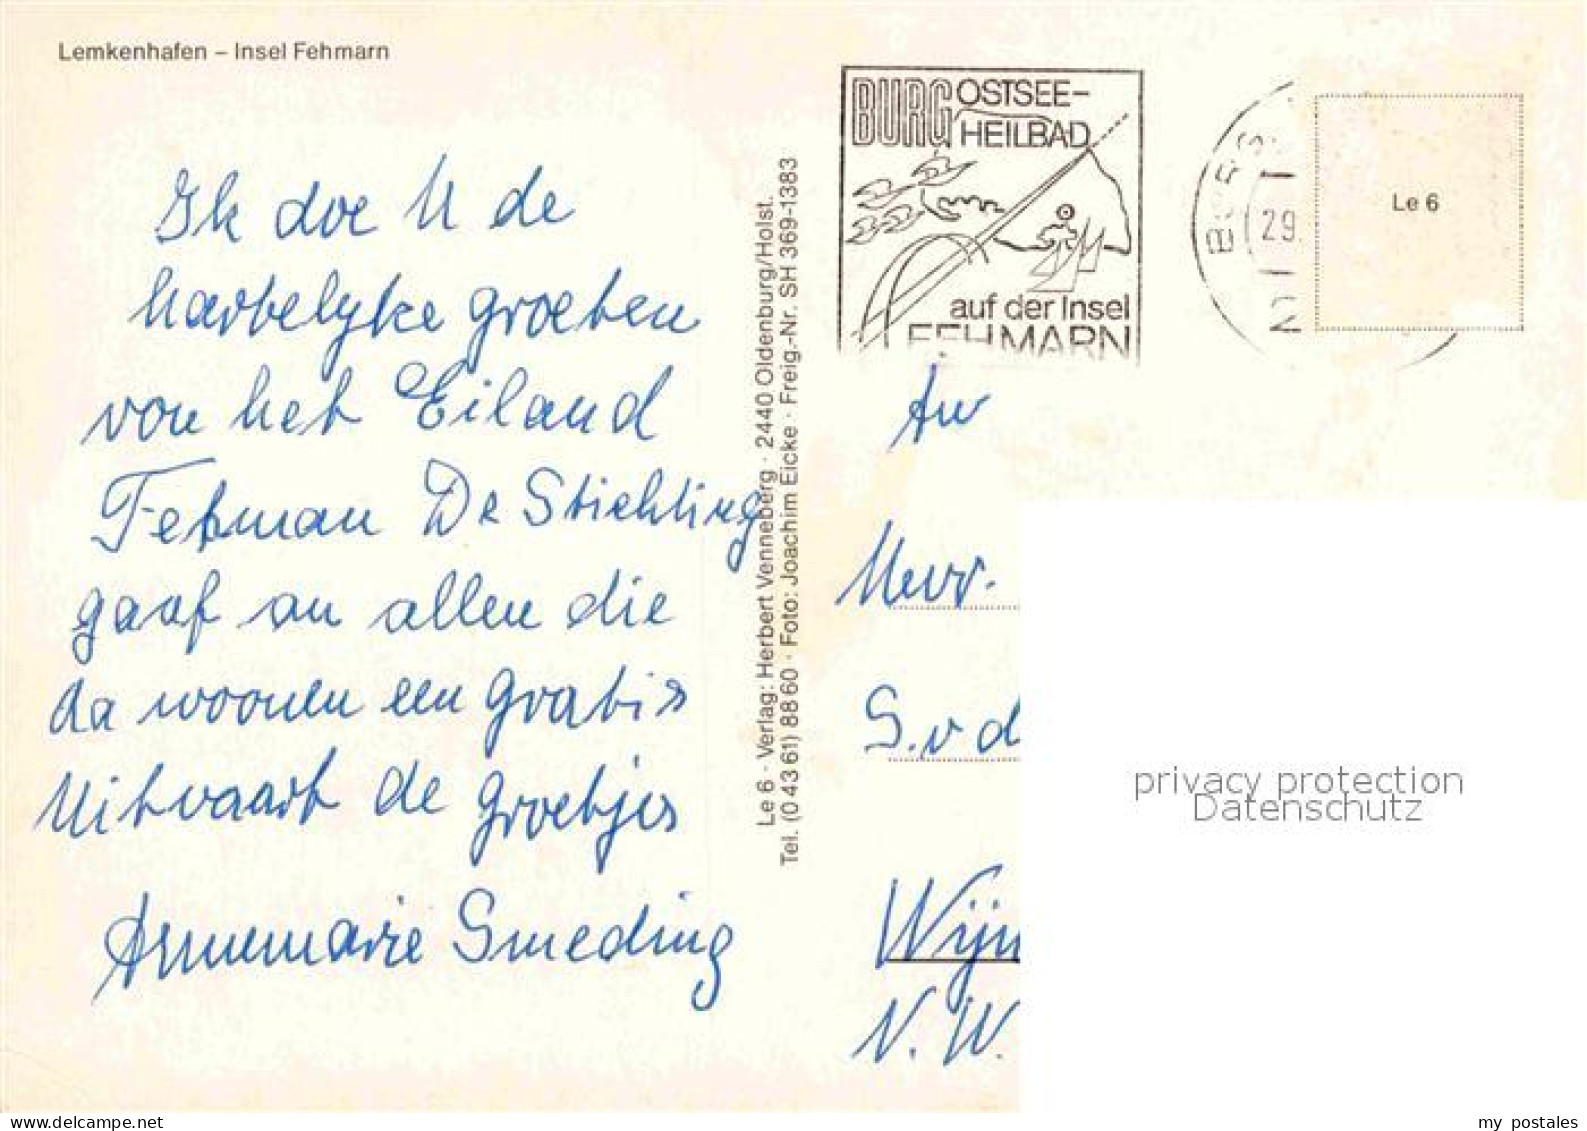 Lemkenhafen – Insel Fehmarn
BURG OSTSEE-
HEILBAD
auf der Insel
FEHMARN
29.
2
Le 6
Ik doe U de
hartelyke groeten
von het Eiland
Fehman De Stichting
gaaf an allen die
da woonen een gratis
Uitvaart de groetjes
Annemarie Smeding
Le 6 · Verlag: Herbert Venneberg · 2440 Oldenburg/Holst.
Tel. (0 43 61) 88 60 · Foto: Joachim Eicke · Freig.-Nr. SH 369-1383
An
Mevr.
S. v d
Wijn
N. W.
privacy protection
Datenschutz
www.delcampe.net
my_postales